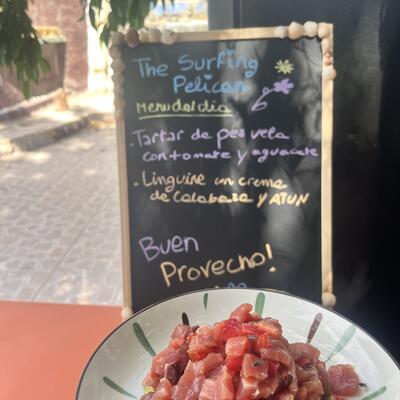 The Surfing
Pelican
Menu del dia
· Tartar de pez vela
con tomate y aguacate
· Linguine en crema
de calabaza y ATUN
Buen
Provecho!